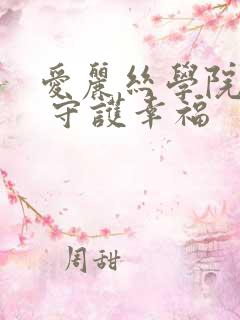 愛麗絲學院
守護幸福
周甜